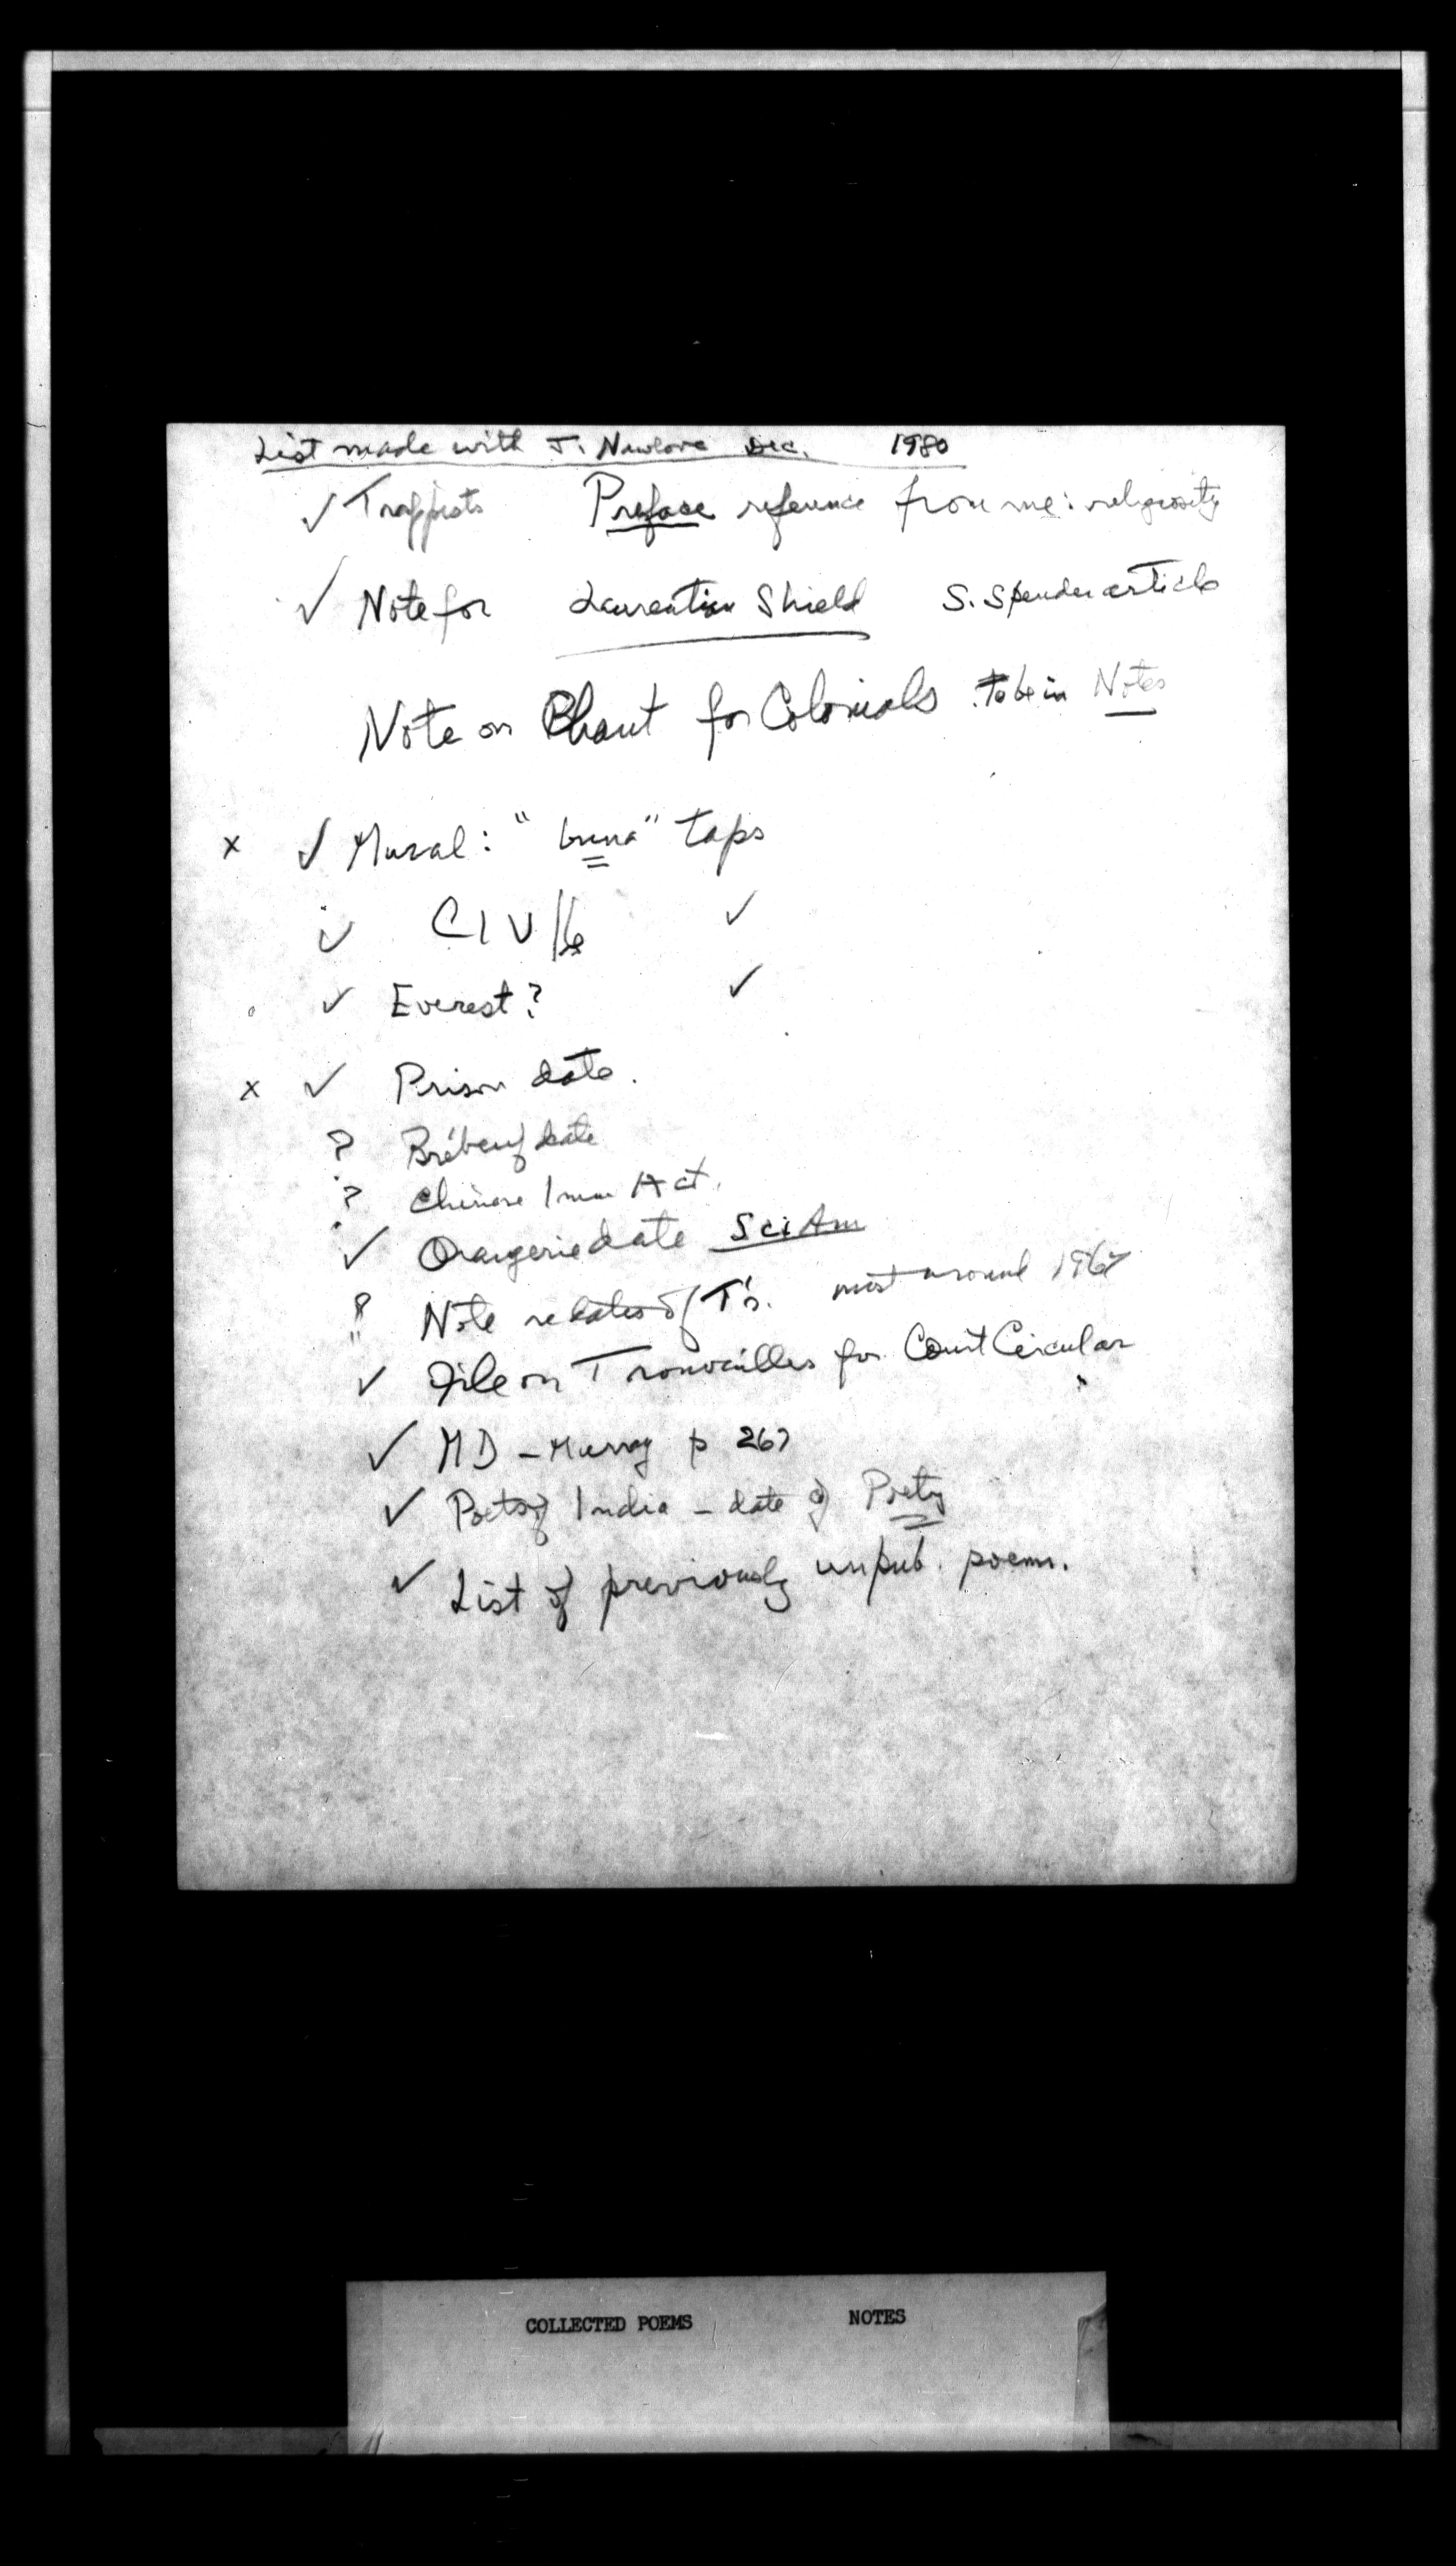 List made with J. Newlove Dec. 1980
✓ Trappists Preface reference from me: religiosity
✓ Note for Laurentian Shield S. Spender article
Note on Chant for Colonials to be in Notes
x ✓ Mural: "buna" taps
✓ CIV/6 ✓
✓ Everest? ✓
x ✓ Prison date.
? Brébeuf date
? Chinese Imm Act.
✓ Orangerie date Sci Am
? Note re dates of T's. most around 1967
✓ File on Trouvailles for Court Circular
✓ MD - Murray p 267
✓ Poets of India - date of Poetry
✓ List of previously unpub. poems.
COLLECTED POEMS NOTES